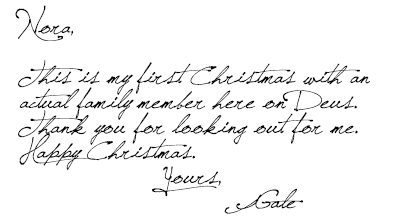 Nora,
This is my first Christmas with an
actual family member here on Deus.
Thank you for looking out for me.
Happy Christmas.
Yours,
Gale